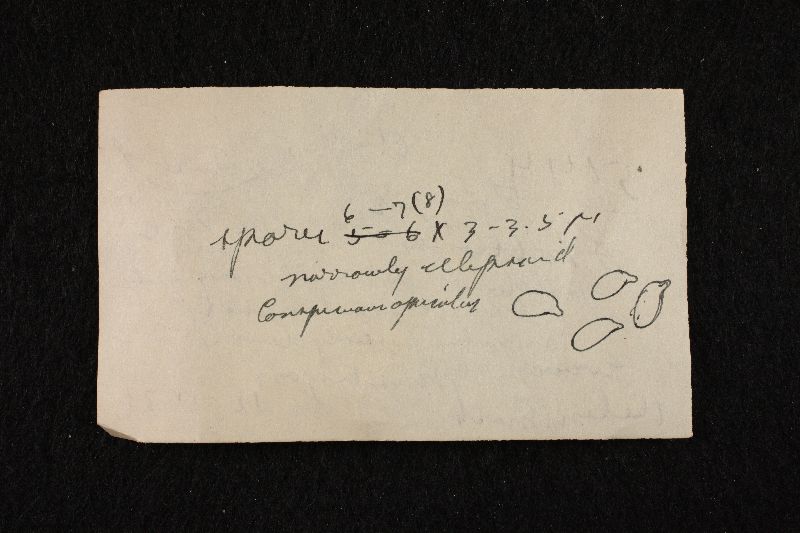 6-7(8)
spores 5-6 X 3-3.5 μ
narrowly ellipsoid
Conspicuous apiculus